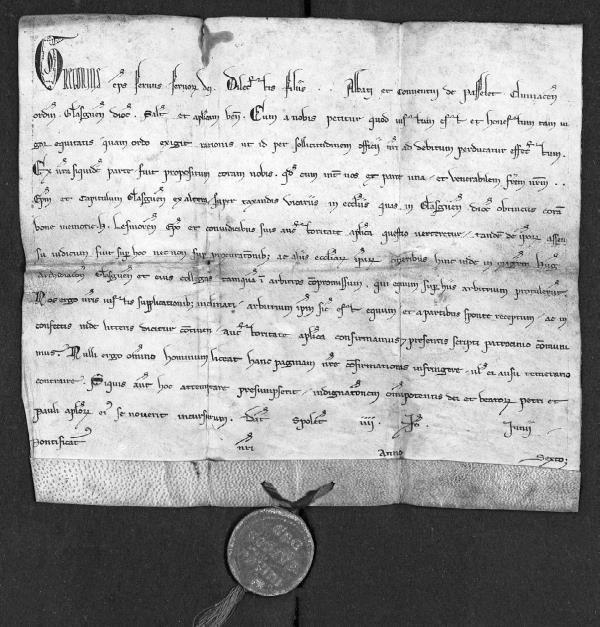 Gregorius ep̄s servus servor̄ dei. Dilectis filiis . . Abbati et conventui de Passelet Cluniaceñ
ordiñ Glasgueñ dioc̄. Salt̄ et apl̄icam beñ. Cum a nobis petitur quod iustum est et honestum tam vi
gor equitatis quam ordo exigit rationis ut id per sollicitudinem officii nr̄i ad debitum perducatur effectum.
Ex vr̄a siquidē parte fuit propositum coram nobis qd̄ cum int̄ vos ex parte una et venerabilem frēm nr̄m . .
Ep̄m et Capitulum Glasgueñ ex altera super taxandis vicariis in ecclīis quas in Glasgueñ dioc̄ obtinetis corā
bone memorie .. Lesmoreñ Ep̄o et coniudicibus suis auctoritate apl̄ica questio verteretur tandē de ip̄or̄ assen
su iudicum fuit sup̄ hoc nec non sup̄ procurationib; ac aliis ecclīar̄ ip̄ar̄ oneribus hinc inde in magr̄m
archidiacoñ Glasgueñ et eius collegas tamquā in arbitros cōpromissum, qui equum sup̄ hiis arbitrium protulerūt.
Nos ergo vr̄is iustis supplicationib; inclinati arbitrium ip̄m sic̄ est equum et a partibus sponte receptum ac in
confectis inde litteris dicitur contineri auctoritate apl̄ica confirmamus et presentis scripti patrocinio cōmuni
mus. Nulli ergo om̄ino hominum liceat hanc paginam nr̄e confirmationis infringere vl̄ ei ausu temerario
contraire. Siquis aut̄ hoc attemptare presumpserit indignationem om̄ipotentis dei et beator̄ Petri et
Pauli aplor̄ ei᷒ se noverit incursurum. Dat̄ Spolet̄ iiii Id̄ Junii
pontificat᷒ nr̄i Anno Sexto;